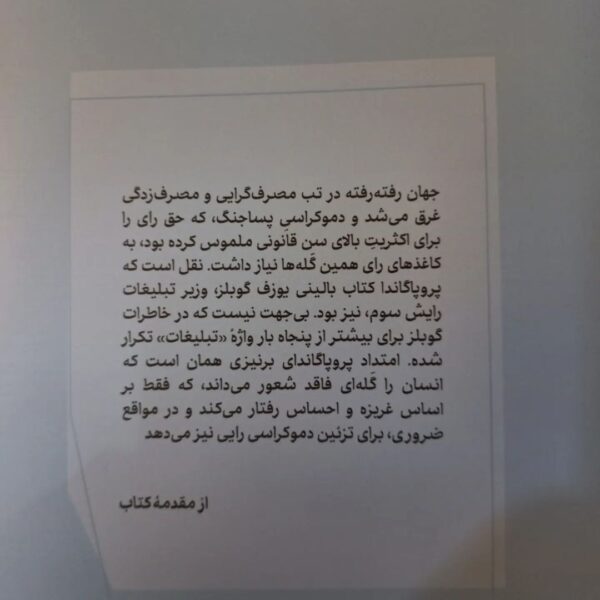 جهان رفته‌رفته در تب مصرف‌گرایی و مصرف‌زدگی
غرق می‌شد و دموکراسیِ پساجنگ، که حق رای را
برای اکثریتِ بالای سن قانونی ملموس کرده بود، به
کاغذهای رای همین گَله‌ها نیاز داشت. نقل است که
پروپاگاندا کتاب بالینی یوزف گوبلز، وزیر تبلیغات
رایش سوم، نیز بود. بی‌جهت نیست که در خاطرات
گوبلز برای بیشتر از پنجاه بار واژهٔ «تبلیغات» تکرار
شده. امتداد پروپاگاندای برنیزی همان است که
انسان را گَله‌ای فاقد شعور می‌داند، که فقط بر
اساس غریزه و احساس رفتار می‌کند و در مواقع
ضروری، برای تزئین دموکراسی رایی نیز می‌دهد
از مقدمهٔ کتاب